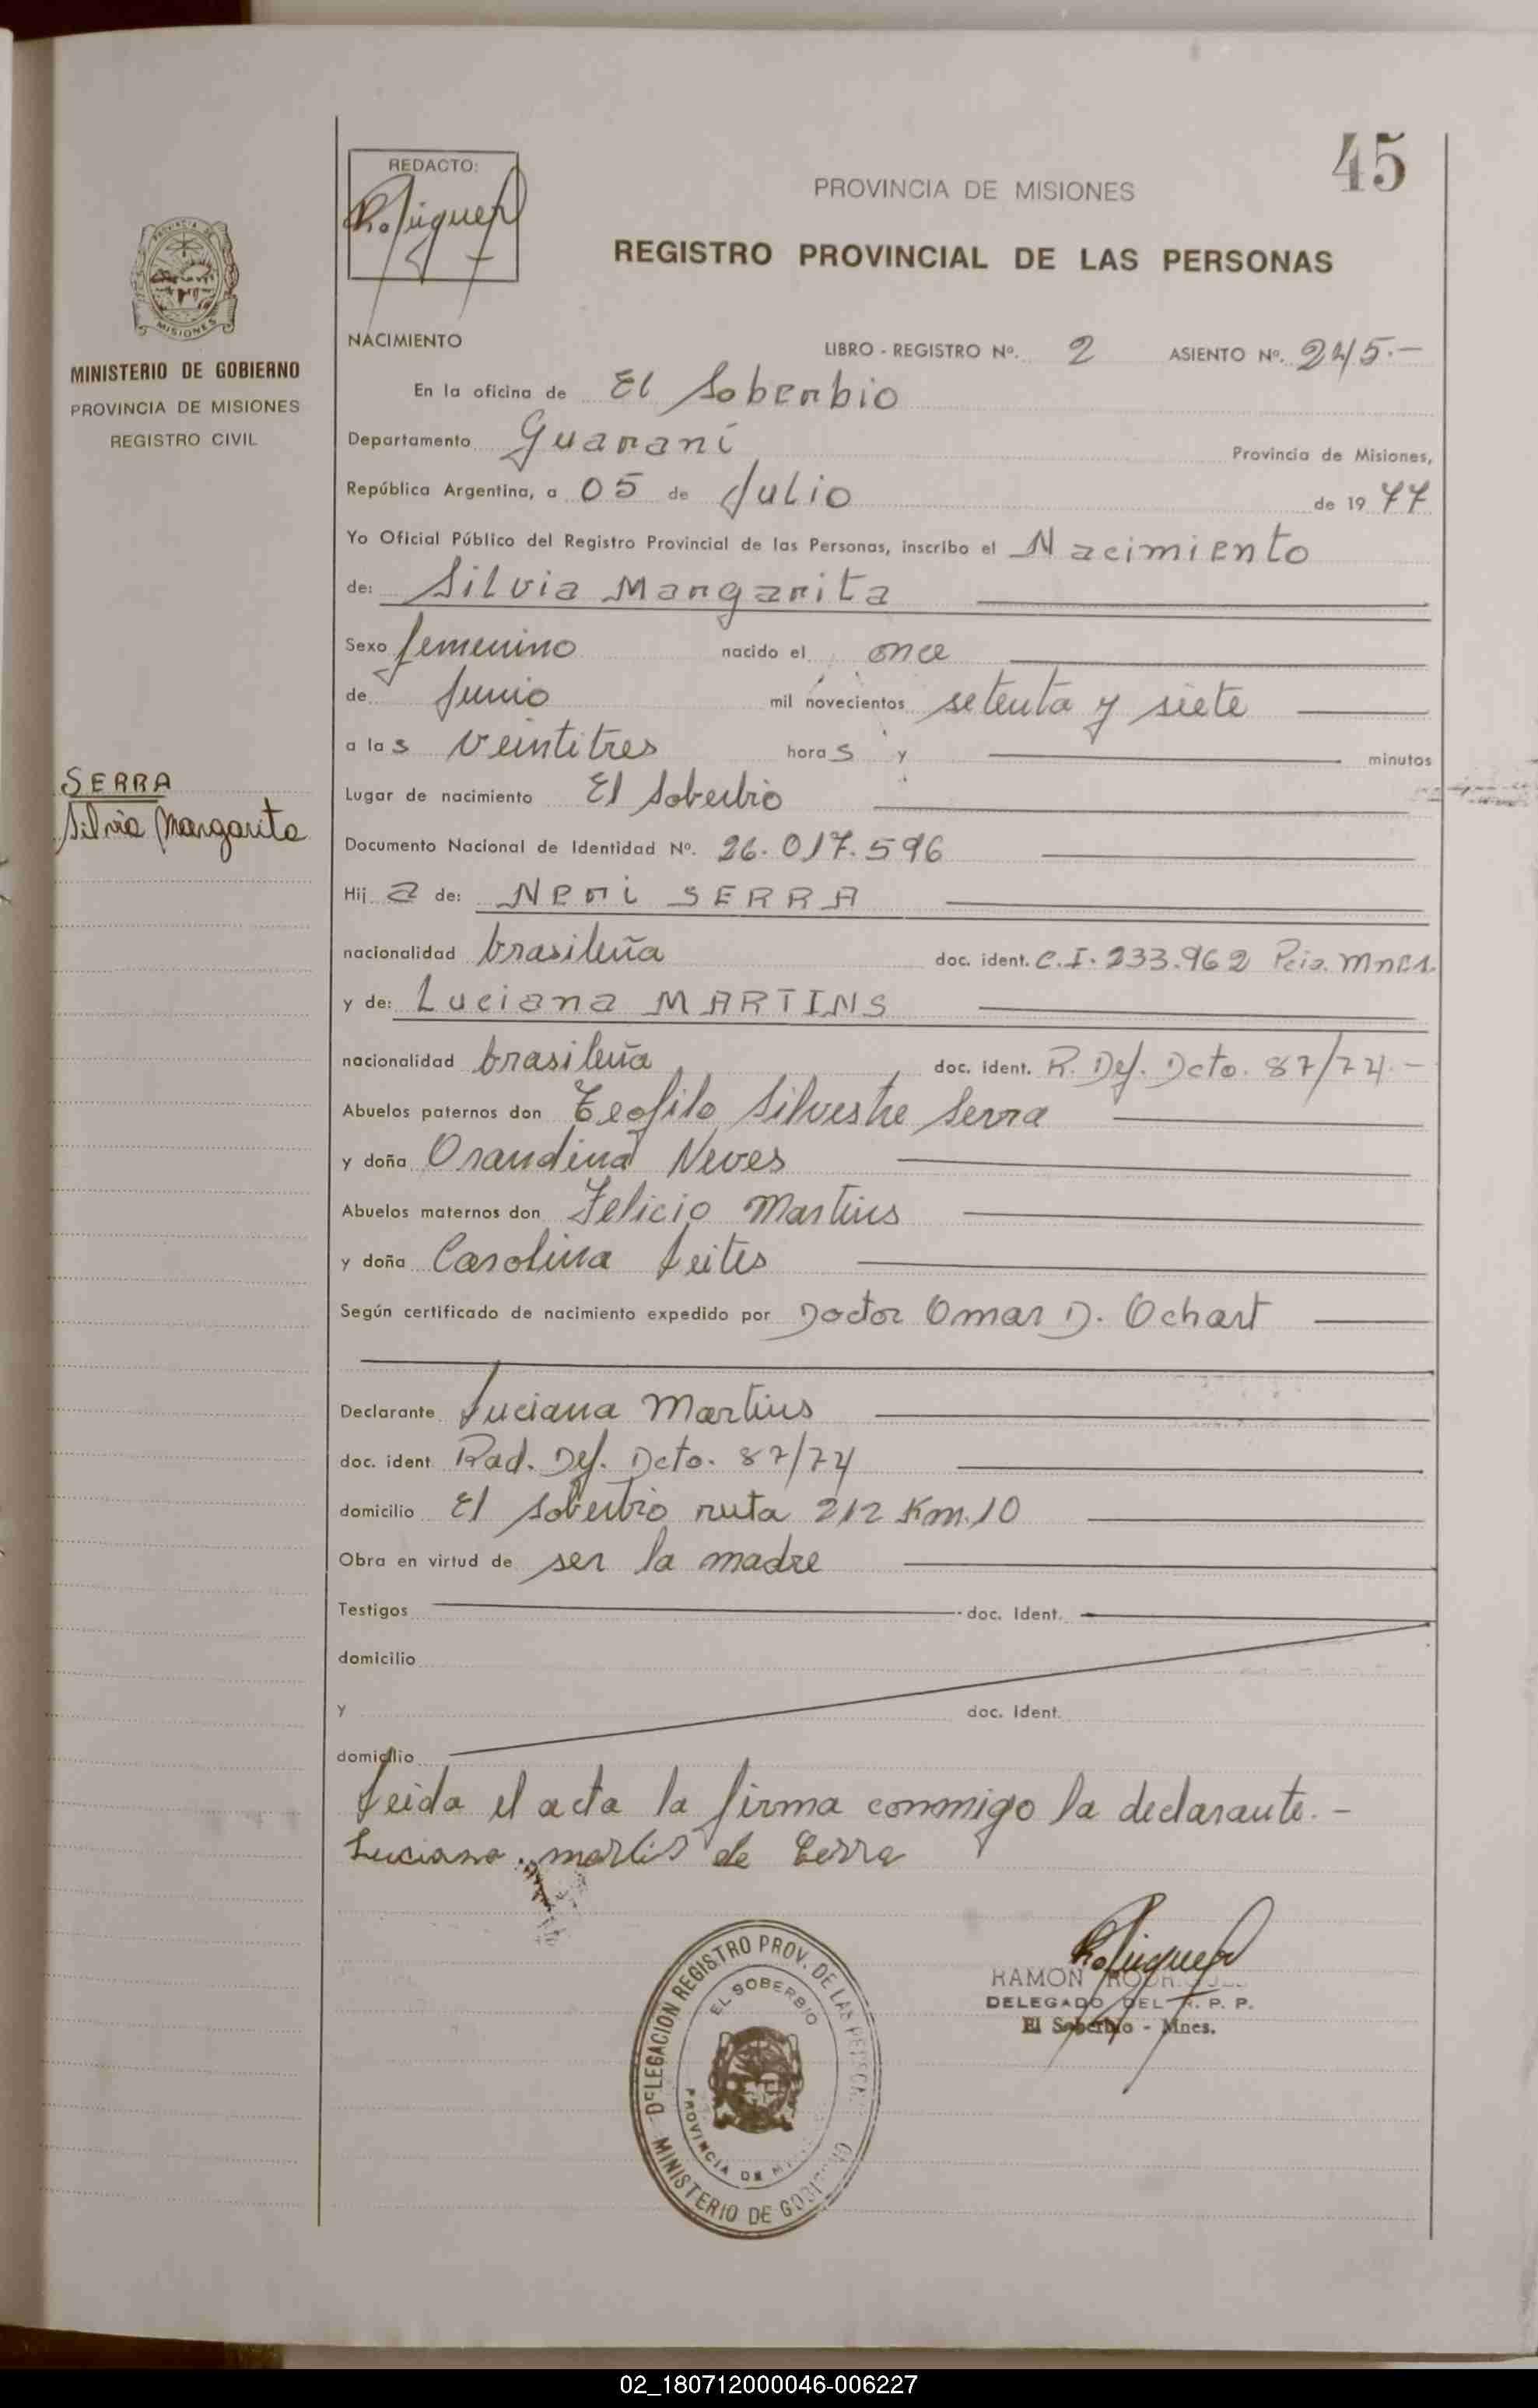 45
REDACTO:
PROVINCIA DE MISIONES
REGISTRO PROVINCIAL DE LAS PERSONAS
MISIONES
MINISTERIO DE GOBIERNO
PROVINCIA DE MISIONES
REGISTRO CIVIL
NACIMIENTO
LIBRO - REGISTRO Nº. 2 ASIENTO Nº. 245.-
En la oficina de El Soberbio
Departamento Guaraní Provincia de Misiones,
República Argentina, a 05 de Julio de 1977
Yo Oficial Público del Registro Provincial de las Personas, inscribo el Nacimiento
de: Silvia Margarita
Sexo femenino nacido el once
de Junio mil novecientos setenta y siete
a las veintitres horas y minutos
Lugar de nacimiento El Soberbio
Documento Nacional de Identidad Nº. 26.017.596
Hija de: Neri SERRA
nacionalidad brasileña doc. ident. C.I. 233.962 Pcia. Mnes.
y de: Luciana MARTINS
nacionalidad brasileña doc. ident. R. Def. Dcto. 87/74.-
Abuelos paternos don Teofilo Silvestre Serra
y doña Orandina Neves
Abuelos maternos don Felicio Martins
y doña Carolina Leites
Según certificado de nacimiento expedido por Doctor Omar D. Ochart
Declarante Luciana Martins
doc. ident Rad. Def. Dcto. 87/74
domicilio El Soberbio ruta 212 Km. 10
Obra en virtud de ser la madre
Testigos doc. Ident.
domicilio
y doc. Ident.
domicilio
Leida el acta la firma conmigo la declarante.-
Luciana martis de Serra
SERRA
Silvia Margarita
DELEGACION REGISTRO PROV. DE LAS
EL SOBERBIO
PROVINCIA DE
MINISTERIO DE
RAMON
DELEGADO DEL R. P. P.
El Soberbio - Mnes.
02_180712000046-006227